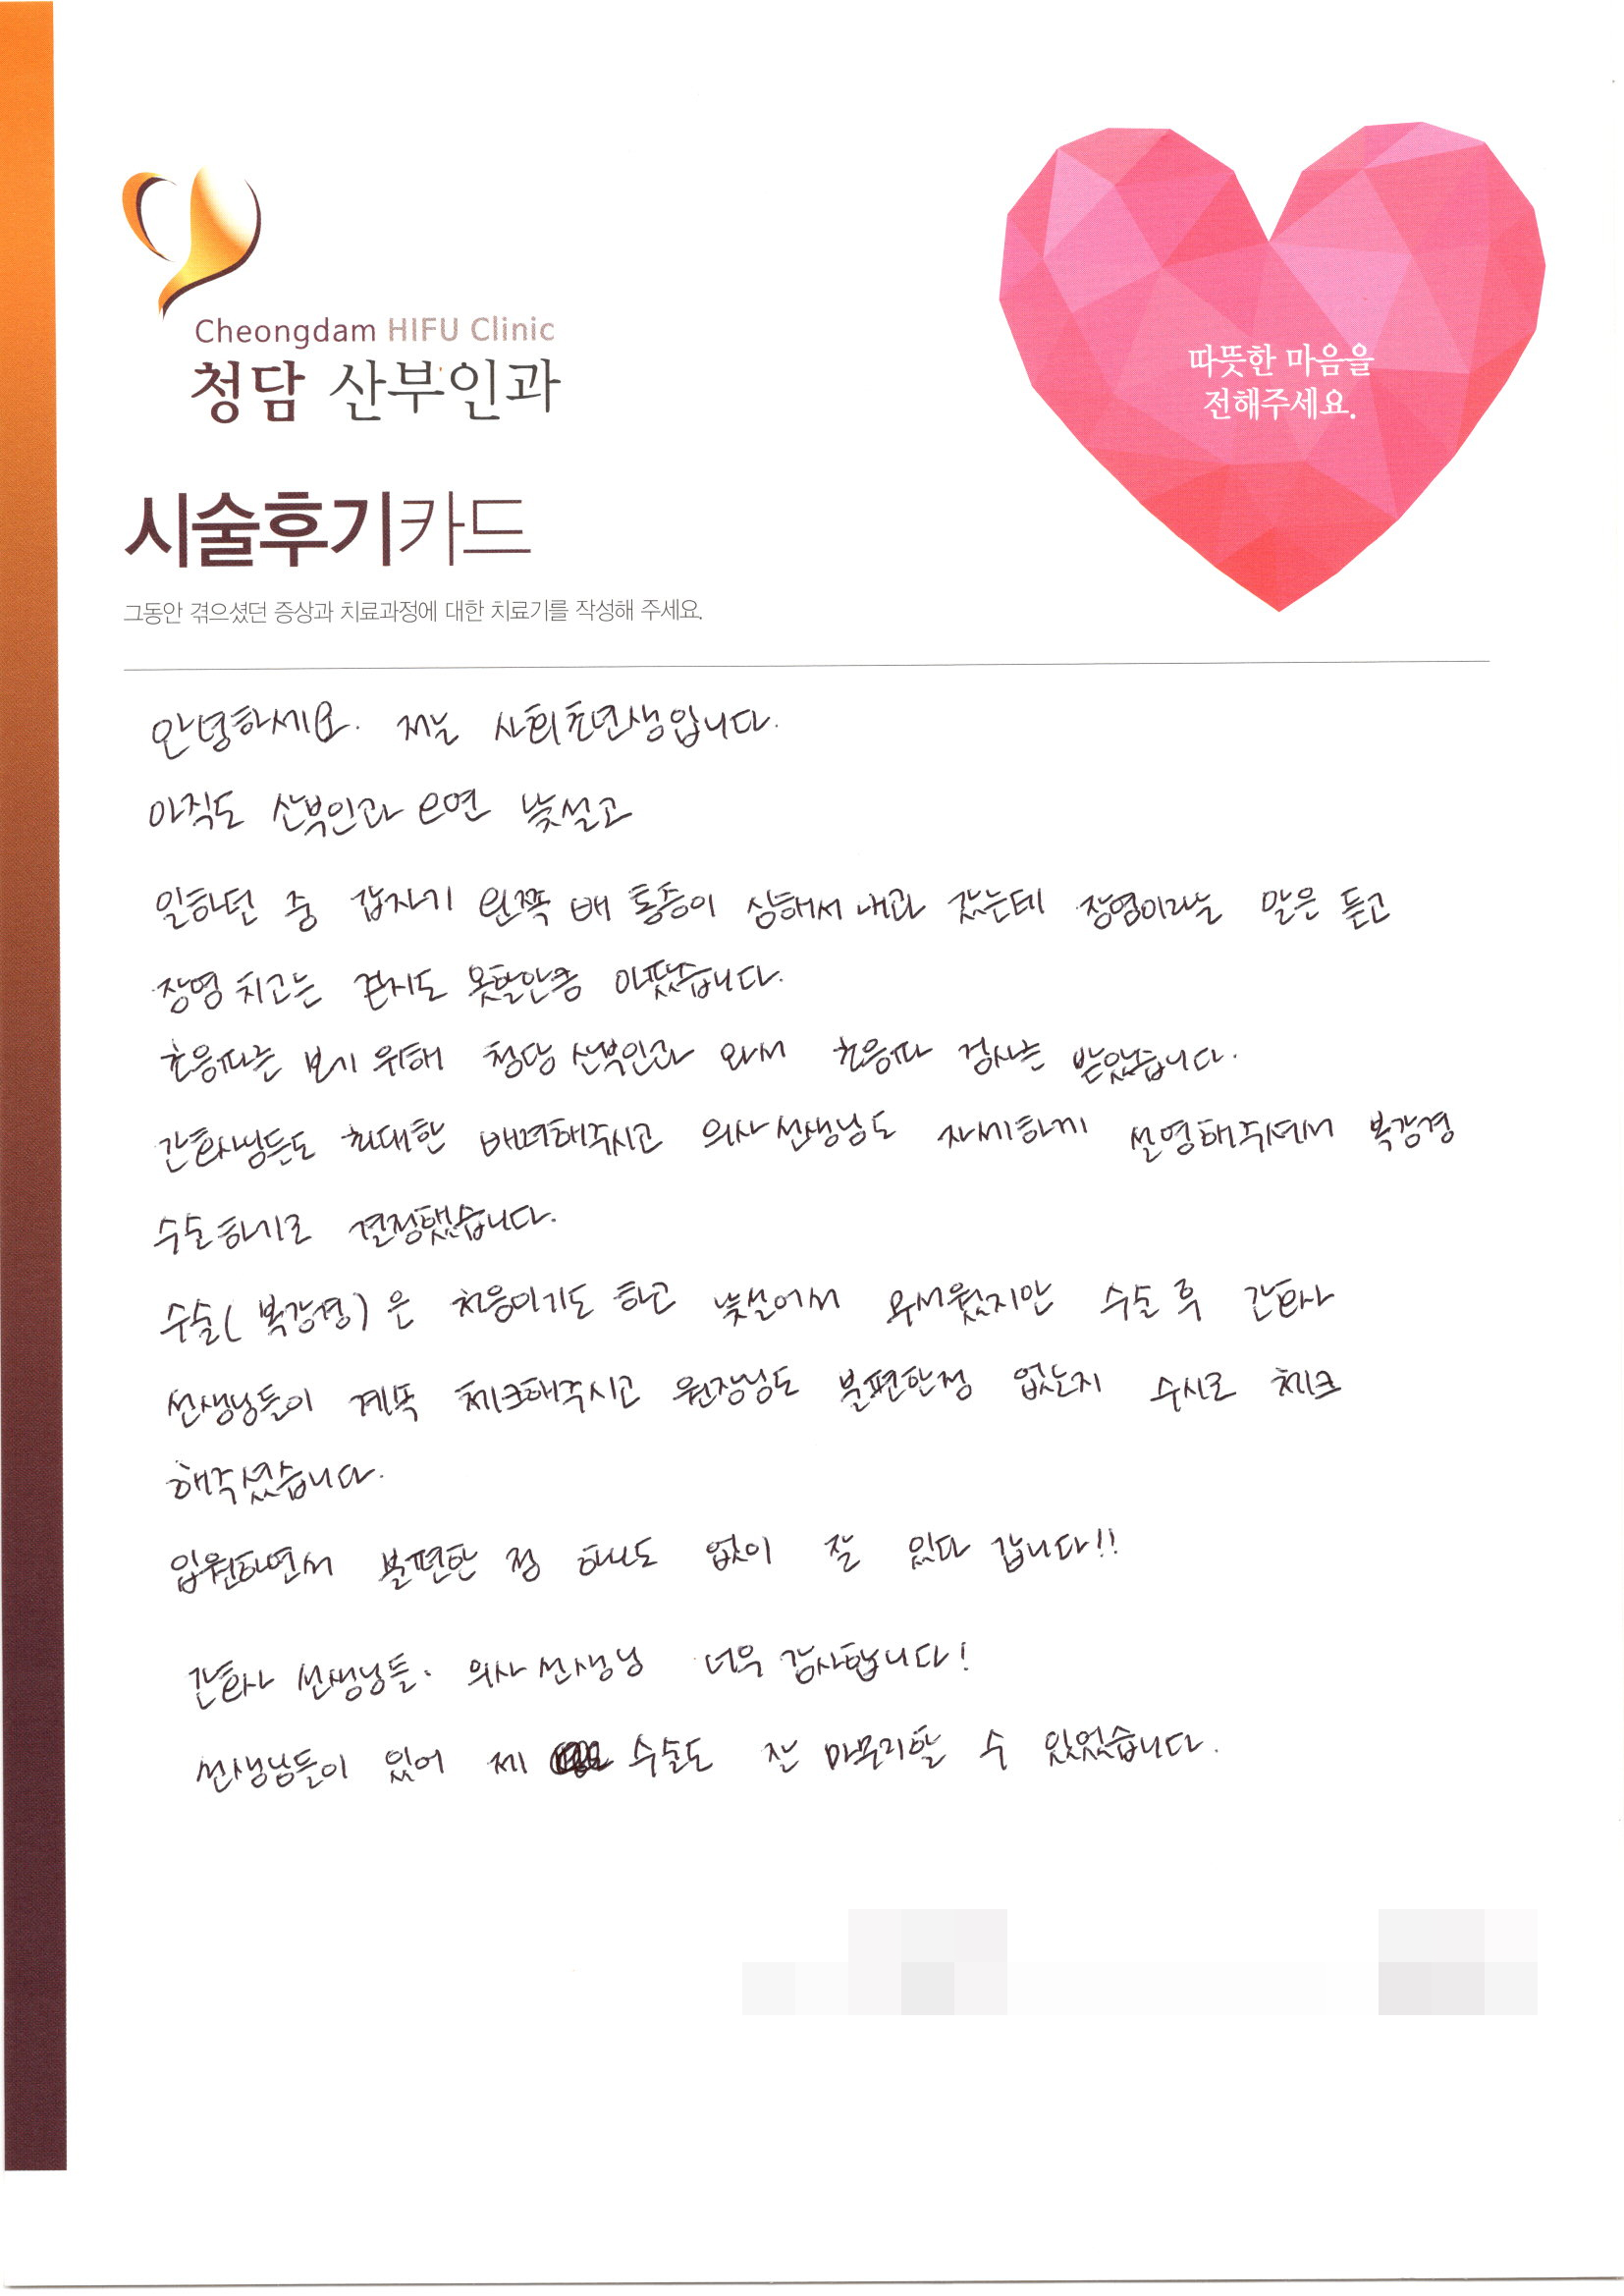 Cheongdam HIFU Clinic
청담 산부인과
따뜻한 마음을
전해주세요.
시술후기카드
그동안 겪으셨던 증상과 치료과정에 대한 치료기를 작성해 주세요.
안녕하세요. 저는 사회초년생입니다.
아직도 산부인과 하면 낯설고
일하던 중 갑자기 왼쪽 배 통증이 심해서 내과 갔는데 장염이라는 말을 듣고
장염 치고는 걷지도 못할만큼 아팠습니다.
초음파를 보기 위해 청담 산부인과 와서 초음파 검사를 받았습니다.
간호사님들도 최대한 배려해주시고 의사선생님도 자세하게 설명해주셔서 복강경
수술하기로 결정했습니다.
수술(복강경)은 처음이기도 하고 낯설어서 무서웠지만 수술 후 간호사
선생님들이 계속 체크해주시고 원장님도 불편한점 없는지 수시로 체크
해주셨습니다.
입원하면서 불편한 점 하나도 없이 잘 있다 갑니다!!
간호사 선생님들. 의사선생님 너무 감사합니다!
선생님들이 있어 제 수술도 잘 마무리할 수 있었습니다.